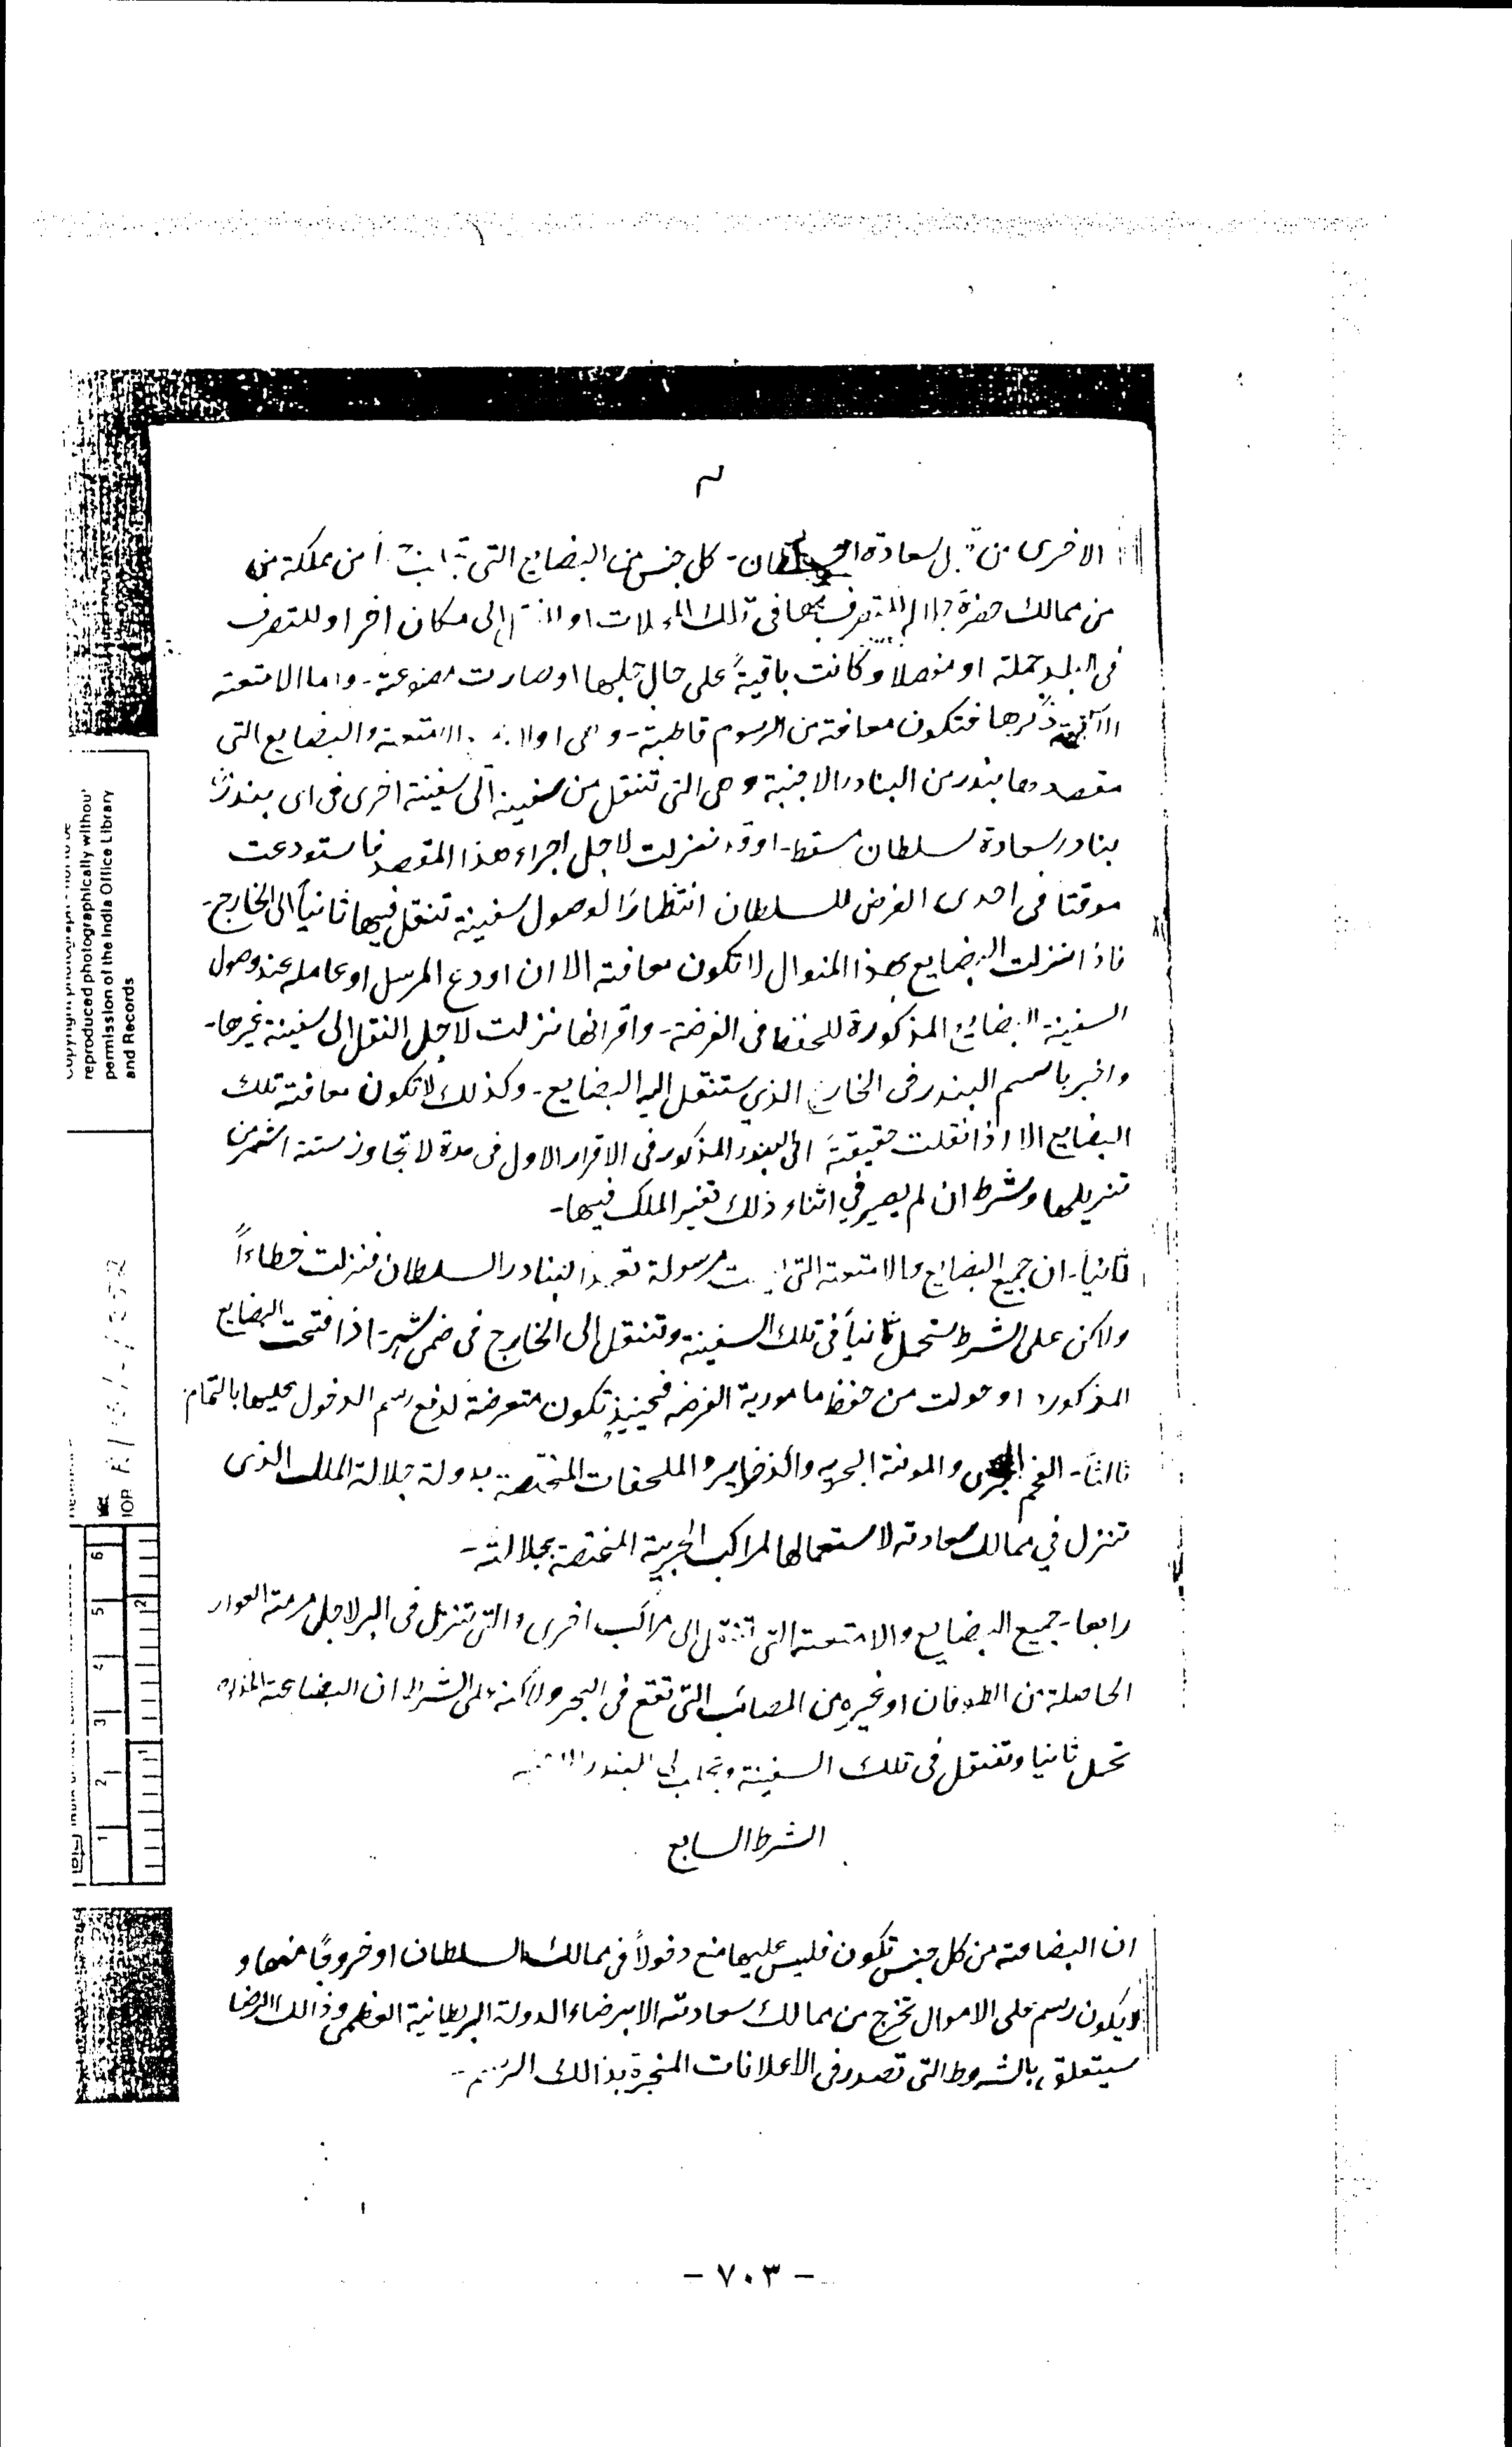 ٣
الاخرى من قبل سعادة السلطان - كل جنس من البضايع التي من مملكة من
من ممالك حضرة في تلك او الى مكان اخر او للتصرف
في البلد جملة او مفصلا وكانت باقيةً على حال جلبها او صارت مصنوعة - واما الامتعة
الآتية ذكرها فتكون معافة من الرسوم قاطبة - وهي اولا الامتعة والبضايع التي
مقصدها بندر من البنادر الاجنبية وهي التي تنقل من سفينة الى سفينة اخرى في اى بندر من
بنادر سعادة سلطان مسقط - او قد نزلت لاجل اجراء هذا المقصد فاستودعت
موقتا في احدى الفرض للسلطان انتظارًا لوصول سفينة تنقل فيها ثانياً الى الخارج -
فاذا نزلت البضايع بهذا المنوال لا تكون معافة الا ان اودع المرسل او عامله عند وصول
السفينة البضائع المذكورة للحفظ في الفرضة - واقر انها نزلت لاجل النقل الى سفينة غيرها -
واخبر باسم البندر في الخارج الذي ستنقل اليه البضايع - وكذلك لا تكون معافة تلك
البضايع الا اذا نقلت حقيقةً الى البندر المذكور في الاقرار الاول في مدة لا تجاوز ستة اشهر من
تنزيلها وشرط ان لم يصير في اثناء ذلك تغير الملك فيها -
ثانياً - ان جميع البضايع والامتعة التي ليست مرسولة لبنادر السلطان فنزلت خطاءاً
ولاكن على الشرط ستحمل ثانياً في تلك السفينة وتنقل الى الخارج في ضمن شهر - اذا فتحت البضايع
المذكورة او حولت من حفظ مامورية الفرضه فحينيذٍ تكون متعرضة لدفع رسم الدخول عليها بالتمام
ثالثاً - الفحم الحجرى والمونة البحريه والذخاير والملحقات المختصة بدولة جلالة الملك الذى
تنزل في ممالك سعادته لاستعمالها لمراكب الحربية المختصة بجلالته -
رابعا - جميع البضايع والامتعة التي تنقل الى مراكب اخرى والتي تنزل في البر لاجل مرمة العوار
الحاصلة من الطوفان او غيره من المصائب التي تقع في البحر ولاكن على الشرط ان البضاعة المذكوره
تحمل ثانيا وتنقل في تلك السفينة البندر
الشرط السابع
ان البضاعة من كل جنس تكون فليس عليها منع دخولاً في ممالك السلطان او خروجًا منها و
لا يكون رسم على الاموال تخرج من ممالك سعادته الا برضاء الدولة البريطانية العظمى وذالك الرضا
سيتعلق بالشروط التي تصدر في الاعلانات المنجرة بذالك الرسم -
- ٧٠٣ -
reproduced photographically without
permission of the India Office Library
and Records
IOR R/15/
1 2 3 4 5 6
1 2